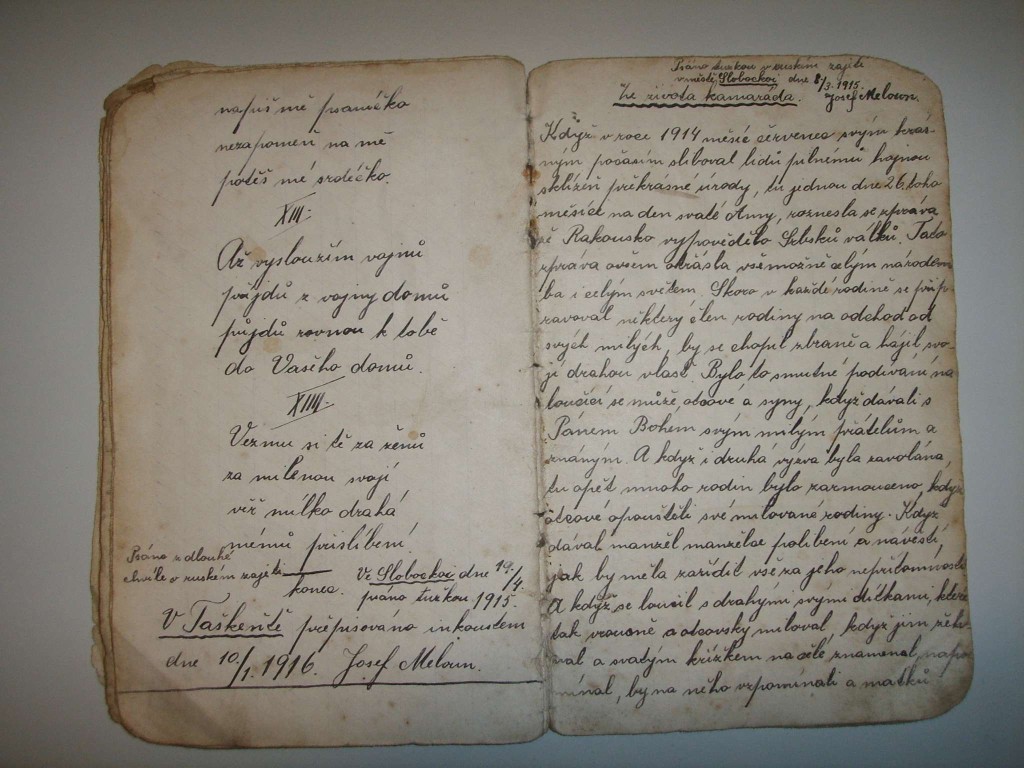 napiš mě psaníčko
nezapomeň na mě
potěš mé srdéčko.
XIII.
Až vysloužím vojnů
přijdů z vojny domů
půjdů rovnou k tobě
do Vašeho domů.
XIIII.
Vezmu si tě za ženů
za milenou svojí
věř milko drahá
mému přislíbení.
Psáno z dlouhé
chvíle v ruském zajetí
konec.
Ve Slobockoi dne 19./4.
psáno tužkou 1915.
V Taškentě přepisováno inkoustem
dne 10./1. 1916. Josef Meloun.
Psáno tuzkou v ruském zajetí
v městě Slobockoi dne 8/3. 1915.
Ze života kamaráda. Josef Meloun.
Když v roce 1914 měsíc červenec svým krás-
ným počasím sliboval lidů pilnému hojnou
sklizeň překrásné úrody, tu jednou dne 26. toho
měsíce na den svaté Anny, roznesla se zpráva
že Rakousko vypovědělo Srbsků válků. Tato
zpráva ovšem otřásla všemožně celým národem
ba i celým světem. Skoro v každé rodině se přip-
ravoval některý člen rodiny na odchod od
svých milých, by se chopil zbraně a hájil svo-
jí drahou vlast. Bylo to smutné podívání na
loučící se muže, otcové a syny, když dávali s
Pánem Bohem svým milým přátelům a
známým. A když i druhá výzva byla zavolána
tu opět mnoho rodin bylo zarmouceno, když
otcové opouštěli své milované rodiny. Když
dával manžel manželce políbení a návěstí,
jak by měla zařídit vše za jeho nepřítomnosti
A když se loučil s drahými svými dítkami, které
tak vroucně a otcovsky miloval, když jim žeh-
nal a svatým křížkem na čele znamenal, napo-
mínal, by na něho vzpomínali a matků